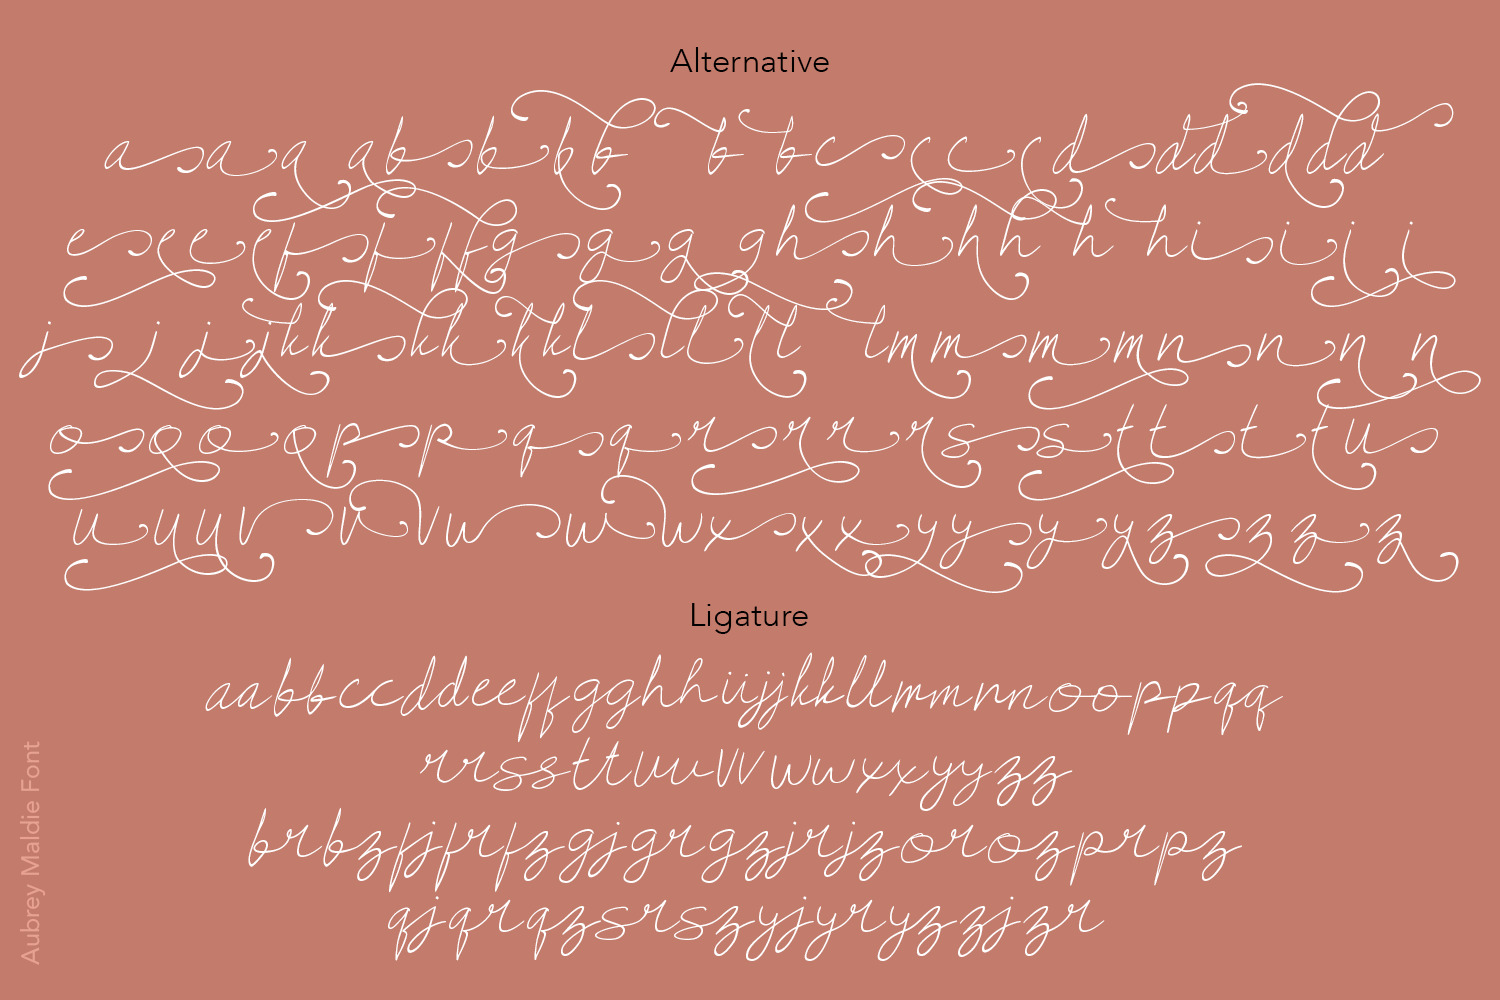 Alternative
a a a a b b b b b b c c c c d d d d d d
e e e e f f f f g g g g h h h h h h i i i i
j j j j k k k k k k l l l l l l m m m m n n n n
o o o o p p q q r r r r s s t t t t u
u u u v v v w w w x x x y y y y z z z z
Ligature
aabbccddeeffgghhiijjkkllmmnnooppqq
rrssttuuvvwwxxyyzz
brbzfjfrfzgjgrgzjrjzorozprpz
qjqrqzsrszyjyryzzjzr
Aubrey Maldie Font